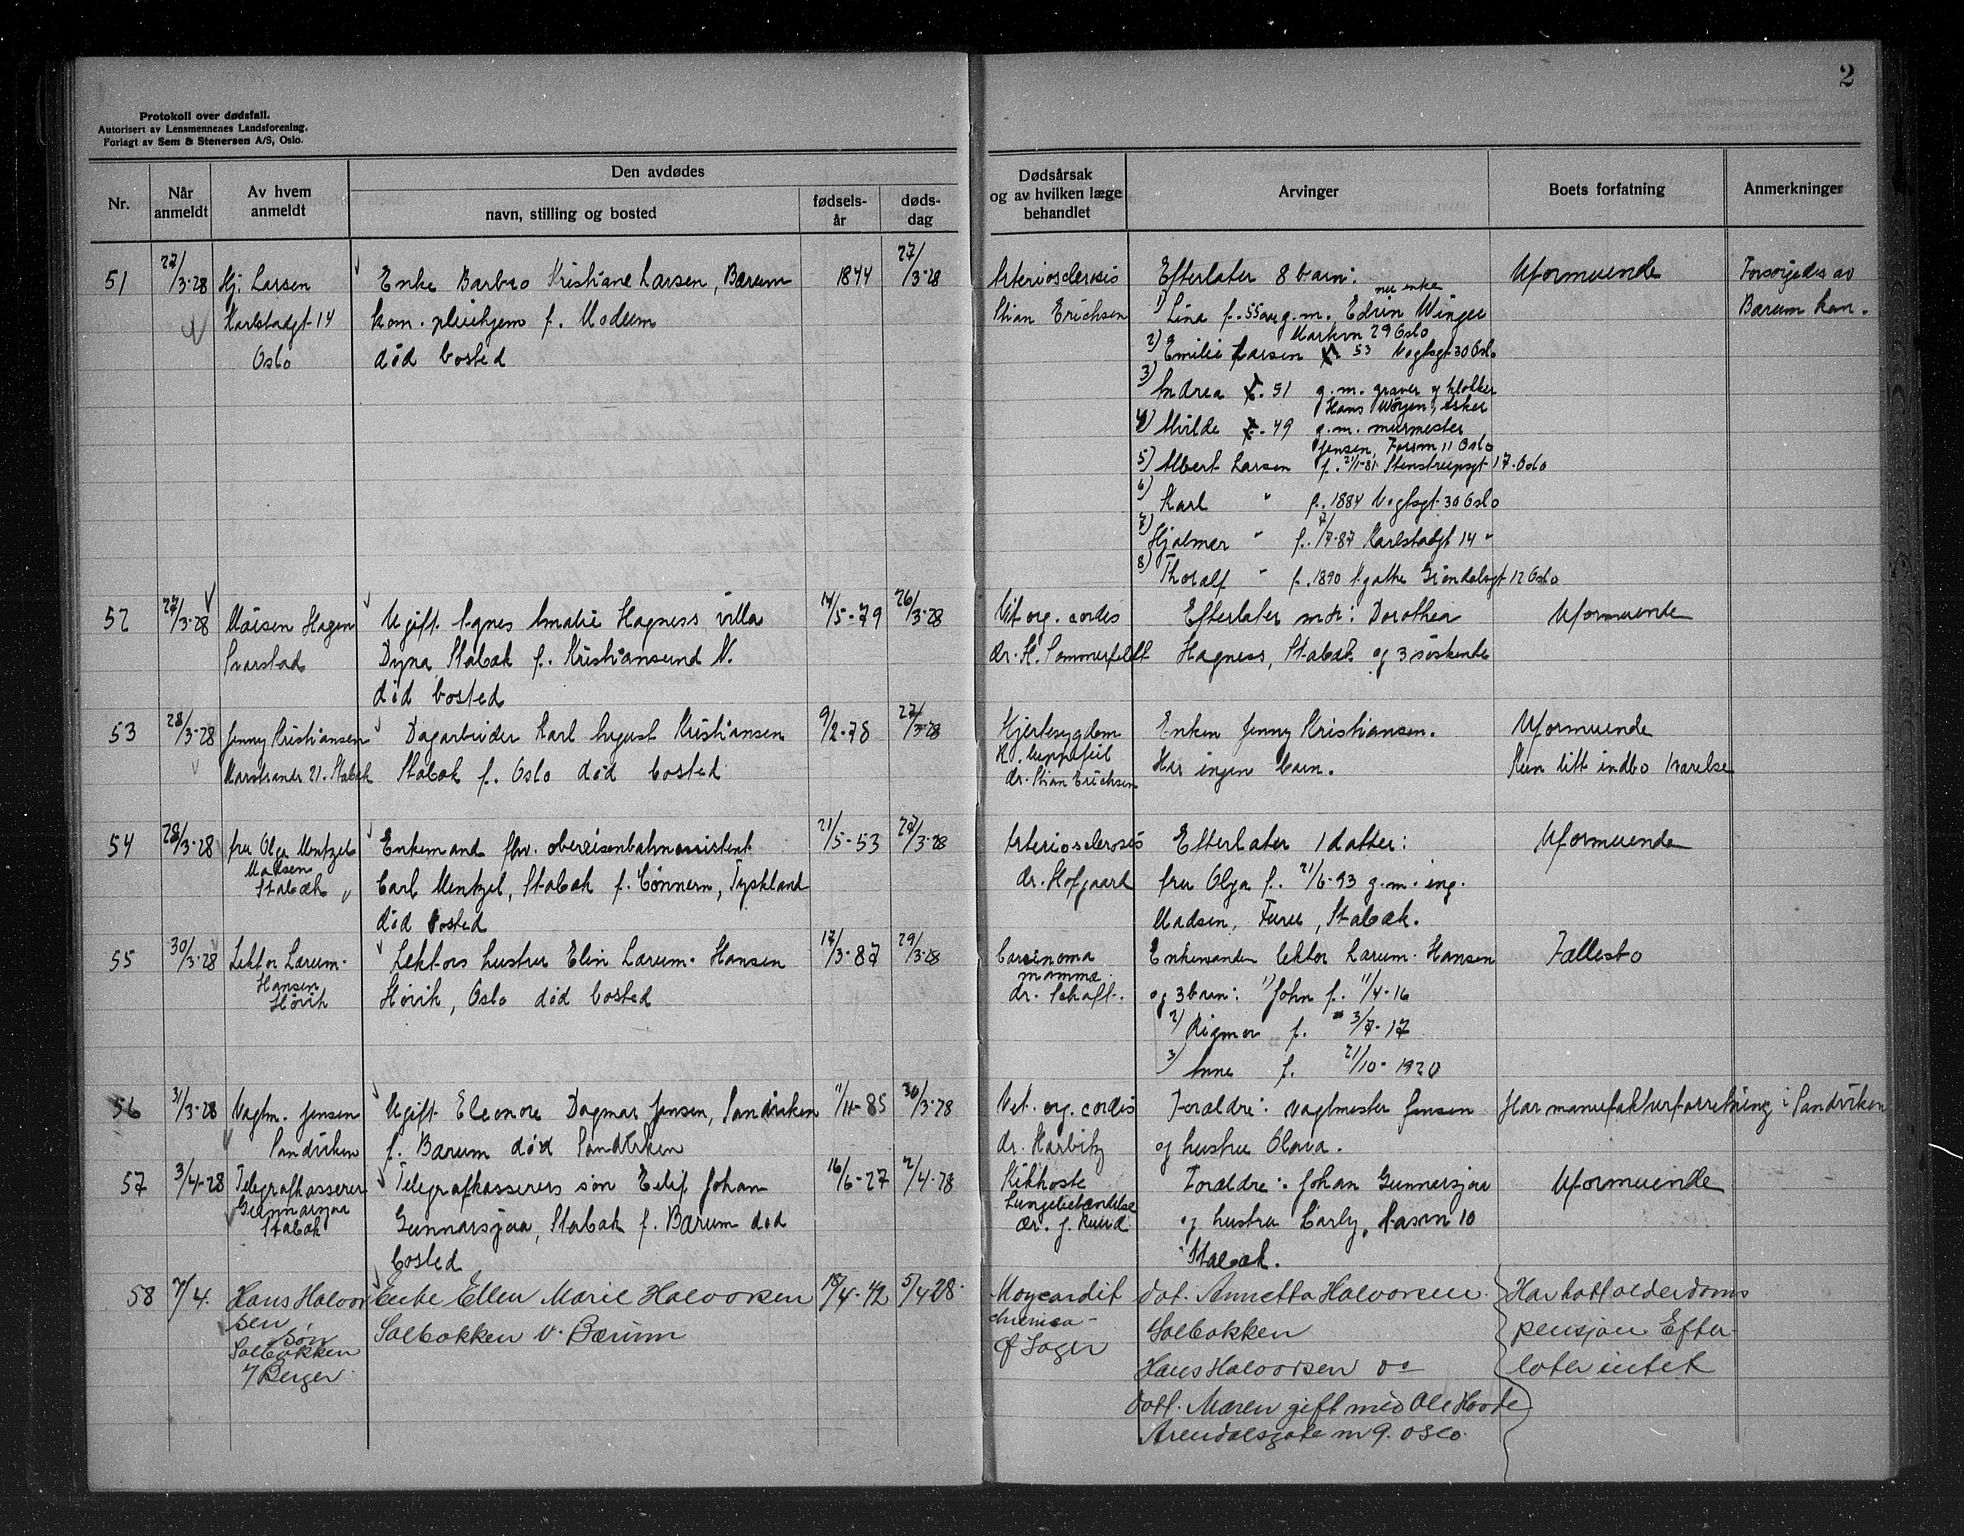 2
Protokoll over dødsfall.
Autorisert av Lensmennenes Landsforening.
Forlagt av Sem & Stenersen A/S, Oslo.
Nr.
Når anmeldt
Av hvem anmeldt
Den avdødes
navn, stilling og bosted
fødsels-år
døds-dag
Dødsårsak og av hvilken læge behandlet
Arvinger
Boets forfatning
Anmerkninger
51
27/3-28
Hj. Larsen
Karlstadgt 14
Oslo
Enke Barbro Kristiane Larsen, Bærum
kom. pleiehjem f. Modum
død bosted
1844
27/3-28
Arteriosclerosis
Stian Erichsen
Efterlater 8 barn:
nu enke
1) Lina f. 55 g.m. Edvin Winger
Markvn 29 Oslo
2) Emilie Larsen f. 53 Vogtsgt 30 Oslo
3) Andrea f. 51 g.m. graver og klokker
Hans Asker
4) f. 49 g.m. murmester
Jensen, 11 Oslo
5) Albert Larsen f. 21/1-81 Stenstrupsgt 17. Oslo
6) Karl " f. 1884 Vogtsgt 30 Oslo
7) Hjalmar " f. 7/7-87 Karlstadgt 14 "
8) Thoralf " f. 1890 Agathe Grøndalsgt 12 Oslo
Uformuende
Forsørgedes av
Bærum kom.
52
27/3-28
Hagen
Svarstad
Ugift Agnes Amalie Hagness villa
Dyna Stabæk f. Kristiansund N.
død bosted
14/5-79
26/3-28
Vit. org. cordis
dr. H. Sommerfeldt
Efterlater mor: Dorothea
Hagness, Stabæk og 3 søskende
Uformuende
53
28/3-28
Jenny Kristiansen
Marstrandv 21. Stabæk
Dagarbeider Karl August Kristiansen
Stabæk f. Oslo død bosted
9/2-78
27/3-28
Hjertesygdom
dr. Stian Erichsen
Enken Jenny Kristiansen.
Har ingen barn.
Uformuende
Kun litt indbo 1 værelse
54
28/3-28
fru Olga Mentzel
Madsen
Stabæk
Enkemand fhv. obereisenbahnassistent
Carl Mentzel, Stabæk f. Cönnern, Tyskland
død bosted
21/5-53
27/3-28
Arteriosclerosis
dr. Hofgaard
Efterlater 1 datter:
fru Olga f. 21/6-93 g.m. ing.
Madsen, Furu, Stabæk.
Uformuende
55
30/3-28
Lektor Lærum-
Hansen
Høvik
Lektors hustru Elin Lærum-Hansen
Høvik, Oslo død bosted
17/3-87
29/3-28
Carcinoma
mamma.
dr. Schaft.
Enkemanden lektor Lærum-Hansen
og 3 barn: 1) John f. 11/4-16
2) Rigmor f. 3/7-17
3) Anne f. 21/10-1920
Fællesbo
56
31/3-28
Vagtm. Jensen
Sandviken
Ugift Eleonore Dagmar Jensen, Sandviken
f. Bærum død Sandviken
11/11-85
30/3-28
Vit. org. cordis
dr. Harbitz
Forældre: vagtmester Jensen
og hustru Olava.
Har manufakturforretning i Sandviken
57
3/4-28
Telegrafkasserer
Gunnarsjaa
Stabæk
Telegrafkasserers søn Eilif Johan
Gunnarsjaa, Stabæk f. Bærum død
bosted
16/6-27
2/4-28
Kikhoste
Lungebetændelse
dr. J. Ruud
Forældre: Johan Gunnarsjaa
og hustru Carly, Aasvn 10
Stabæk.
Uformuende
58
7/4.
Hans Halvor
sen
søn
Solbakken
Berger
Enke Ellen Marie Halvorsen
Solbakken v. Bærum
18/4-42
5/4 28.
Myocardit
chronica-
dat. Annetta Halvorsen.
Solbakken
Hans Halvorsen do
datt. Maren gift med Ole Hovde
Arendalsgate nr 9. Oslo.
Har hatt alderdoms
pensjon Efter-
later intet